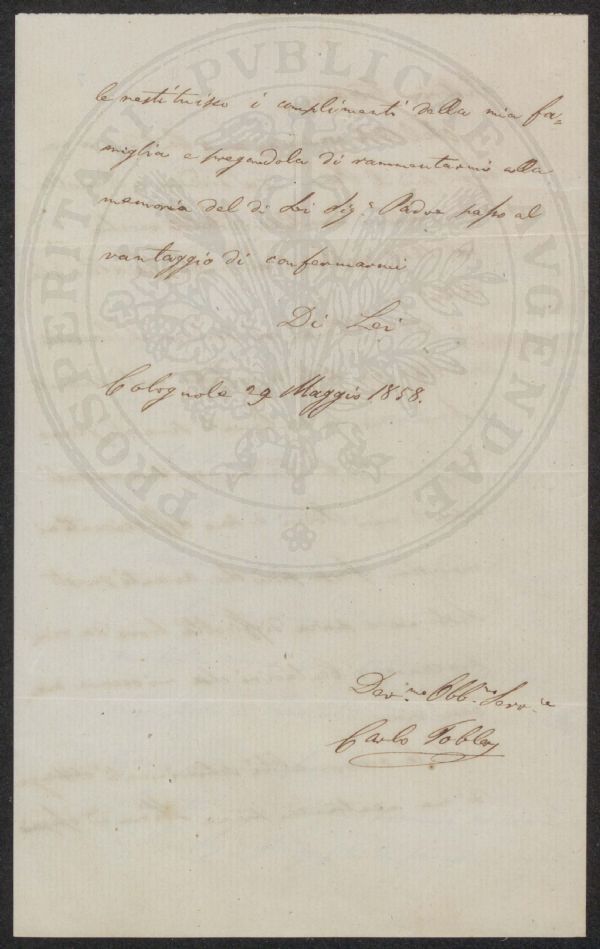 PROSPERITATI PVBLICAE AVGENDAE
le restituisco i complimenti della mia fa=
miglia e pregandola di rammentarmi alla
memoria del di Lei Sig.e Padre passo al
vantaggio di confermarmi
Di Lei
Colognole 29 Maggio 1858.
Dev.mo Obb.mo Serv.re
Carlo Tobler